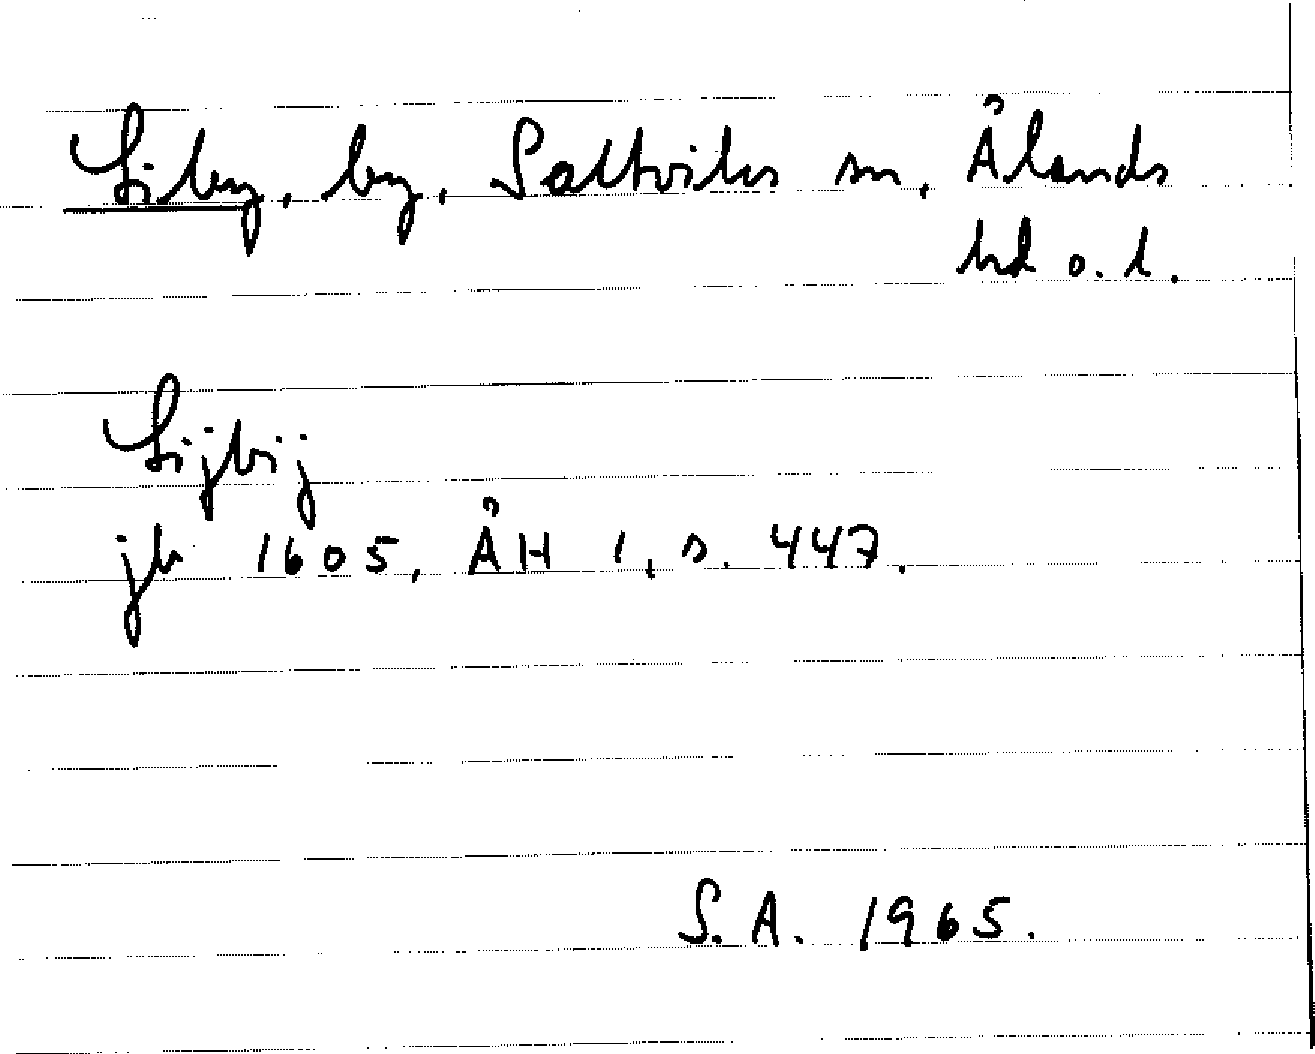 Liby, by, Saltviks sn, Ålands
hd o. l.
Lijbij
jb 1605, ÅH 1, s. 447.
S. A. 1965.